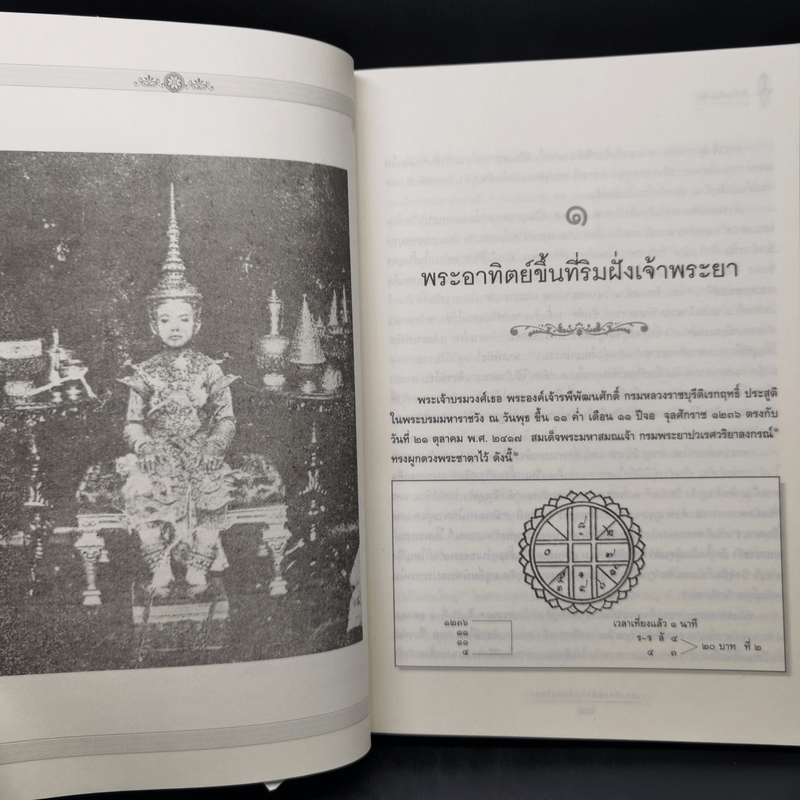 ๑
พระอาทิตย์ขึ้นที่ริมฝั่งเจ้าพระยา
พระเจ้าบรมวงศ์เธอ พระองค์เจ้ารพีพัฒนศักดิ์ กรมหลวงราชบุรีดิเรกฤทธิ์ ประสูติ
ในพระบรมมหาราชวัง ณ วันพุธ ขึ้น ๑๑ ค่ำ เดือน ๑๑ ปีจอ จุลศักราช ๑๒๓๖ ตรงกับ
วันที่ ๒๑ ตุลาคม พ.ศ. ๒๔๑๗ สมเด็จพระมหาสมณเจ้า กรมพระยาปวเรศวริยาลงกรณ์
ทรงผูกดวงพระชาตาไว้ ดังนี้
๑๒๓๖
๑๑
๑๑
๔
เวลาเที่ยงแล้ว ๑ นาที
ร-ร ลั ๔
๔ ๓
๒๐ บาท ที่ ๒